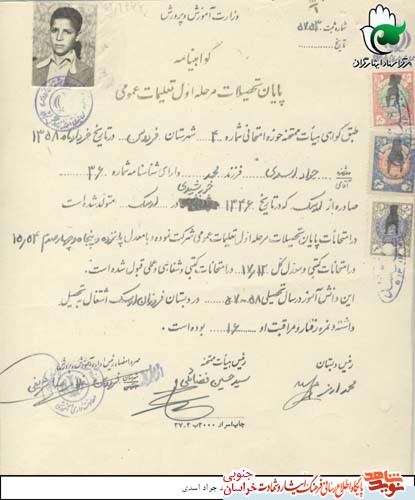 وزارت آموزش و پرورش
شماره ثبت ۵۷۵۳
تاریخ
گواهینامه
پایان تحصیلات مرحله اول تعلیمات عمومی
طبق گواهی هیأت ممتحنه حوزه امتحانی شماره ۴ شهرستان فردوس در تاریخ خرداد ماه ۱۳۵۸
آقای جواد اسدی فرزند محمد دارای شناسنامه شماره ۳۶
صادره از ارسک که در تاریخ ۱۳۴۶ خورشیدی در ارسک متولد شده است
در امتحانات پایان تحصیلات مرحله اول تعلیمات عمومی شرکت نموده و با معدل پانزده و پنجاه و چهار صدم ۱۵/۵۴
در امتحانات کتبی و معدل کل ۱۷/۱۳ در امتحانات کتبی و شفاهی و عملی قبول شده است.
این دانش آموز در سال تحصیلی ۵۸-۵۷ در دبستان فرزان ارسک اشتغال به تحصیل
داشته و نمره رفتار و مراقبت او ۱۶ بوده است.
رئیس دبستان
رئیس هیأت ممتحنه
سید حسین
چاپ اسرار ۲۰۰۰ ب ۲-۳۷
جواد اسدی
مرکز اسناد ایثارگران
پایگاه اطلاع رسانی فرهنگ ایثار و شهادت خراسان جنوبی
نوید شاهد